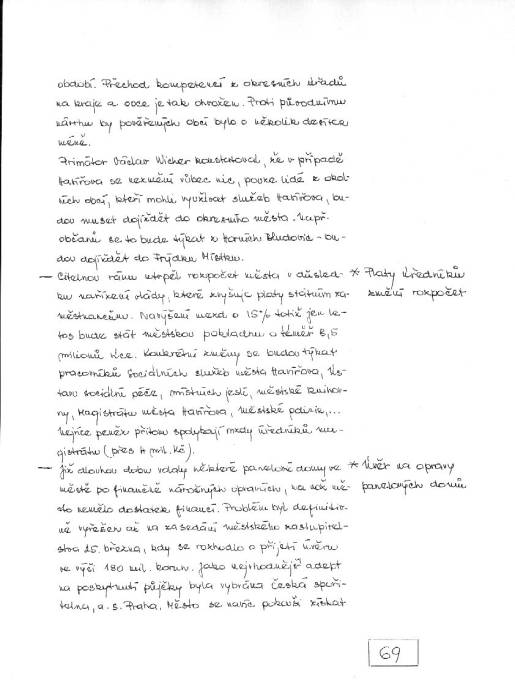 období. Přechod kompetencí z okresních úřadů
na kraje a obce je tak ohrožen. Proti původnímu
návrhu by pověřených obcí bylo o několik desítek
méně.
Primátor Václav Wicher konstatoval, že v případě
Havířova se nezmění vůbec nic, pouze lidé z okol-
ních obcí, kteří mohli využívat služeb Havířova, bu-
dou muset dojíždět do okresního města. Např.
občanů se to bude týkat z Horních Bludovic - bu-
dou dojíždět do Frýdku Místku.
— Citelnou ránu utrpěl rozpočet města v důsled- * Platy úředníků
ku nařízení vlády, které zvyšuje platy státním za- změní rozpočet
městnancům. Navýšení mezd o 15% totiž jen le-
tos bude stát městskou pokladnu o téměř 8,5
milionů více. Konkrétní změny se budou týkat
pracovníků Sociálních služeb města Havířova, Ús-
tavu sociální péče, místních jeslí, městské knihov-
ny, Magistrátu města Havířova, městské policie,...
Nejvíce peněz přitom spolykají mzdy úředníků ma-
gistrátu (přes 4 mil. Kč).
— Již dlouhou dobu volaly některé panelové domy ve * Úvěr na opravy
městě po finančně náročných opravách, na což mě- panelových domů
sto nemělo dostatek financí. Problém byl definitiv-
ně vyřešen až na zasedání městského zastupitel-
stva 25. března, kdy se rozhodlo o přijetí úvěru
ve výši 180 mil. korun. Jako nejvhodnější adept
na poskytnutí půjčky byla vybrána Česká spoři-
telna, a.s. Praha. Město se navíc pokusí získat
69